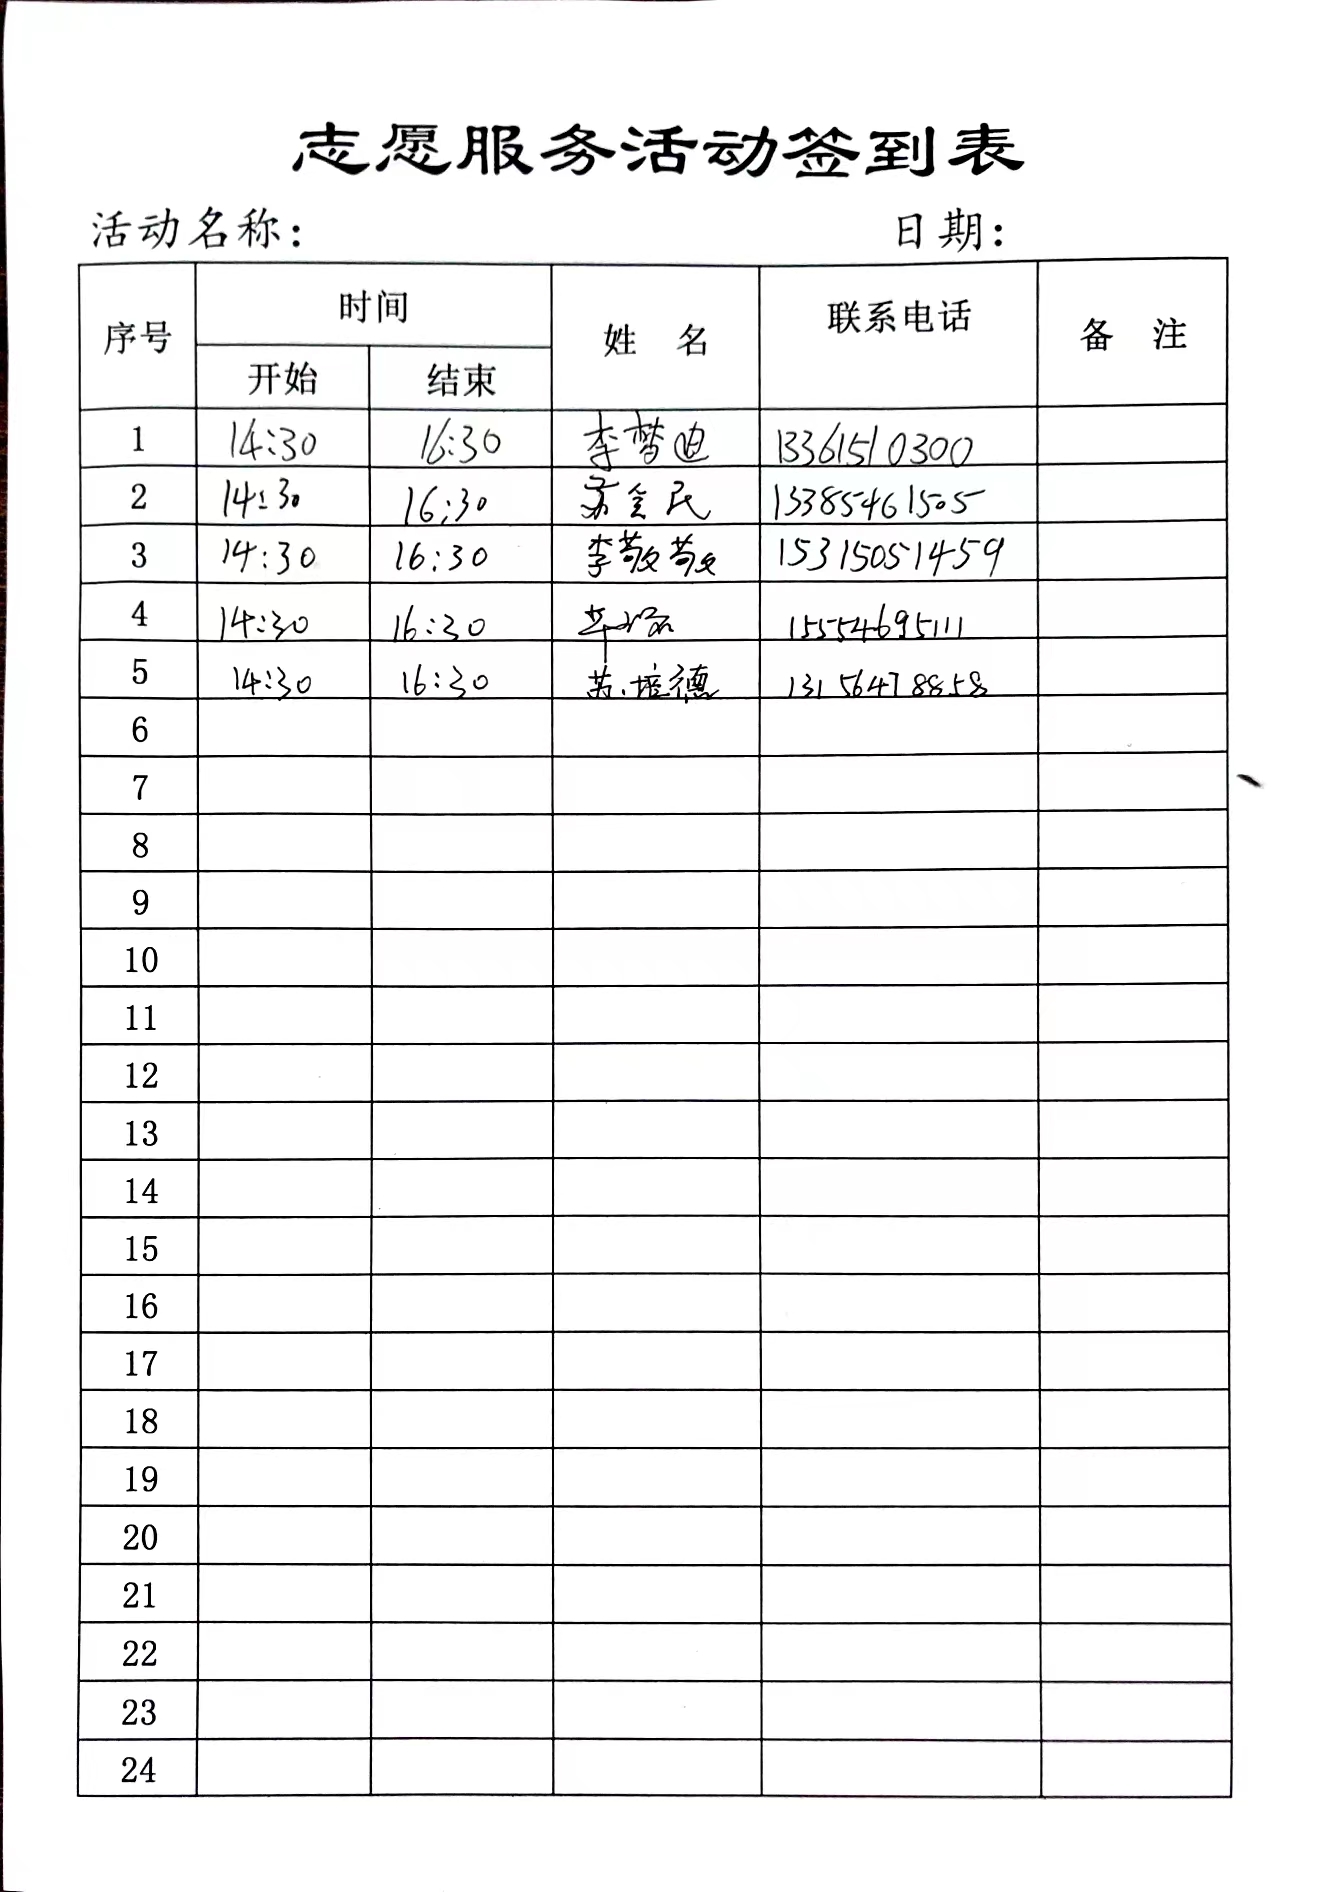 志愿服务活动签到表
活动名称： 日期：
序号 时间 姓 名 联系电话 备 注
开始 结束
1 14:30 16:30 李梦迪 13361510300
2 14:30 16:30 苏全民 13385461505
3 14:30 16:30 李敬敬 15315051459
4 14:30 16:30 15554695111
5 14:30 16:30 苏培德 13156478858
6
7
8
9
10
11
12
13
14
15
16
17
18
19
20
21
22
23
24